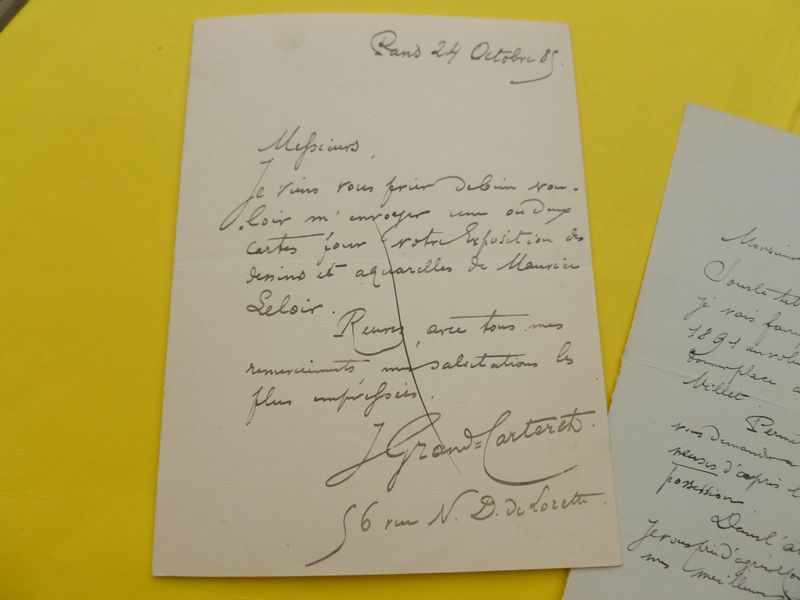 Paris 24 Octobre 85.
Messieurs,
Je viens vous prier de bien vou-
loir m'envoyer une ou deux
cartes pour votre Exposition des
dessins et aquarelles de Maurice
Leloir.
Recevez, avec tous mes
remerciements mes salutations les
plus empressées.
J Grand=Carteret.
56 rue N. D. de Lorette.
Monsieur
je vais faire
1891 un volu
Millet.
Perme
vous demander
d'après l
possession
Dans l'at
Je vous prie d'agréer
mes meilleurs